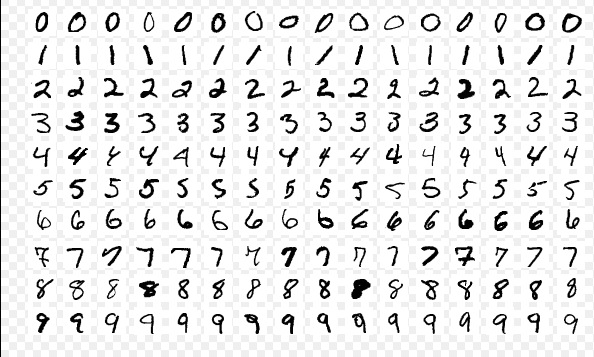 0 0 0 0 0 0 0 0 0 0 0 0 0 0 0 0
1 1 1 1 1 1 1 1 1 1 1 1 1 1 1 1
2 2 2 2 2 2 2 2 2 2 2 2 2 2 2 2
3 3 3 3 3 3 3 3 3 3 3 3 3 3 3 3
4 4 4 4 4 4 4 4 4 4 4 4 4 4 4 4
5 5 5 5 5 5 5 5 5 5 5 5 5 5 5 5
6 6 6 6 6 6 6 6 6 6 6 6 6 6 6 6
7 7 7 7 7 7 7 7 7 7 7 7 7 7 7 7
8 8 8 8 8 8 8 8 8 8 8 8 8 8 8 8
9 9 9 9 9 9 9 9 9 9 9 9 9 9 9 9